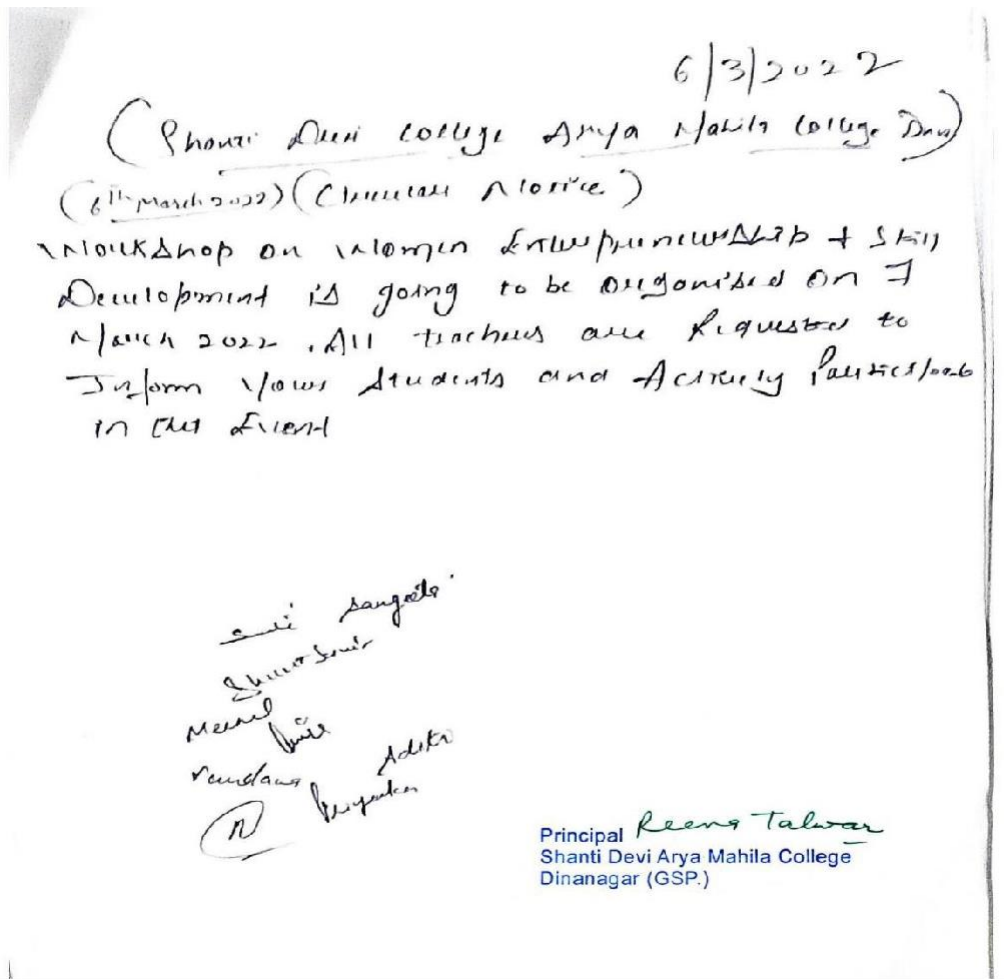 6/3/2022
(Shanti Devi College Arya Mahila College Dnn)
(6th March 2022) (Circular Notice)
Workshop on Women Entrepreneurship + Skill
Development is going to be organised on 7
March 2022. All teachers are Requested to
Inform Your Students and Actively Participate
in the Event
Sangeeta
Meenal
Vandana
Aditi
Priyanka
Principal Reena Talwar
Shanti Devi Arya Mahila College
Dinanagar (GSP.)